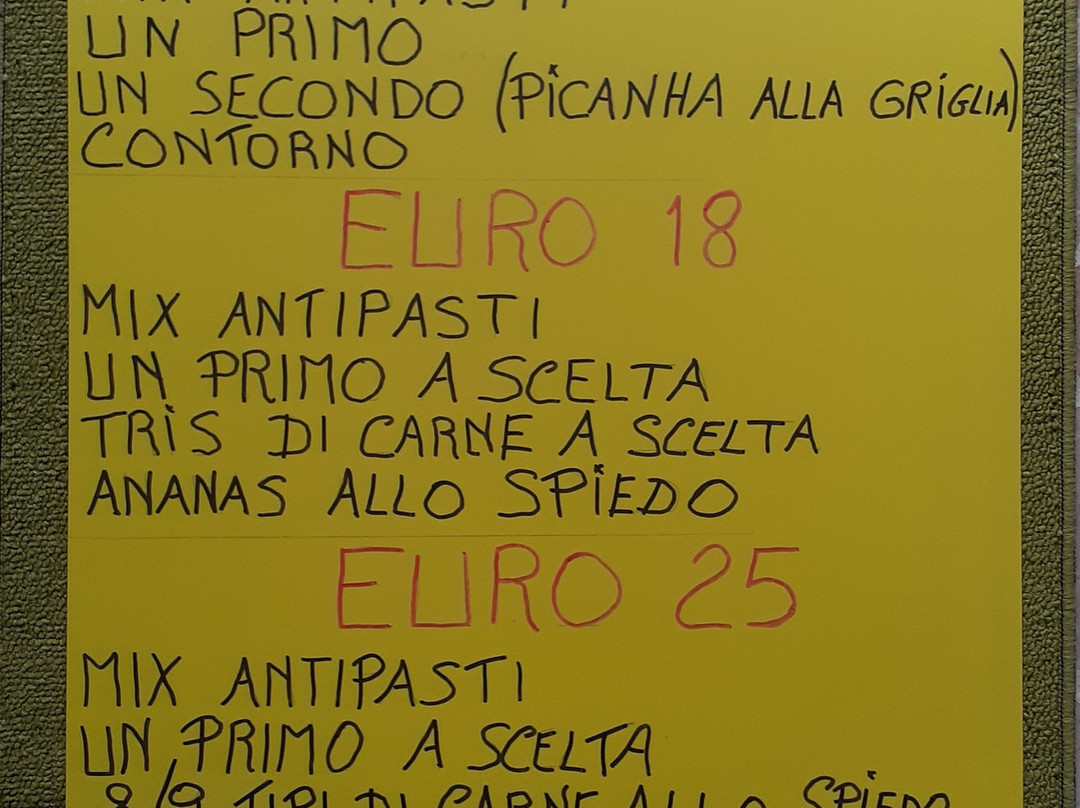 MIX ANTIPASTI
UN PRIMO
UN SECONDO (PiCANHA ALLA GRiGLIA)
CONTORNO
EURO 18
MIX ANTIPASTI
UN PRIMO A SCELTA
TRiS DI CARNE A SCELTA
ANANAS ALLO SPiEDO
EURO 25
MIX ANTIPASTI
UN PRIMO A SCELTA
8/9 TIPI DI CARNE ALLO SPiEDO